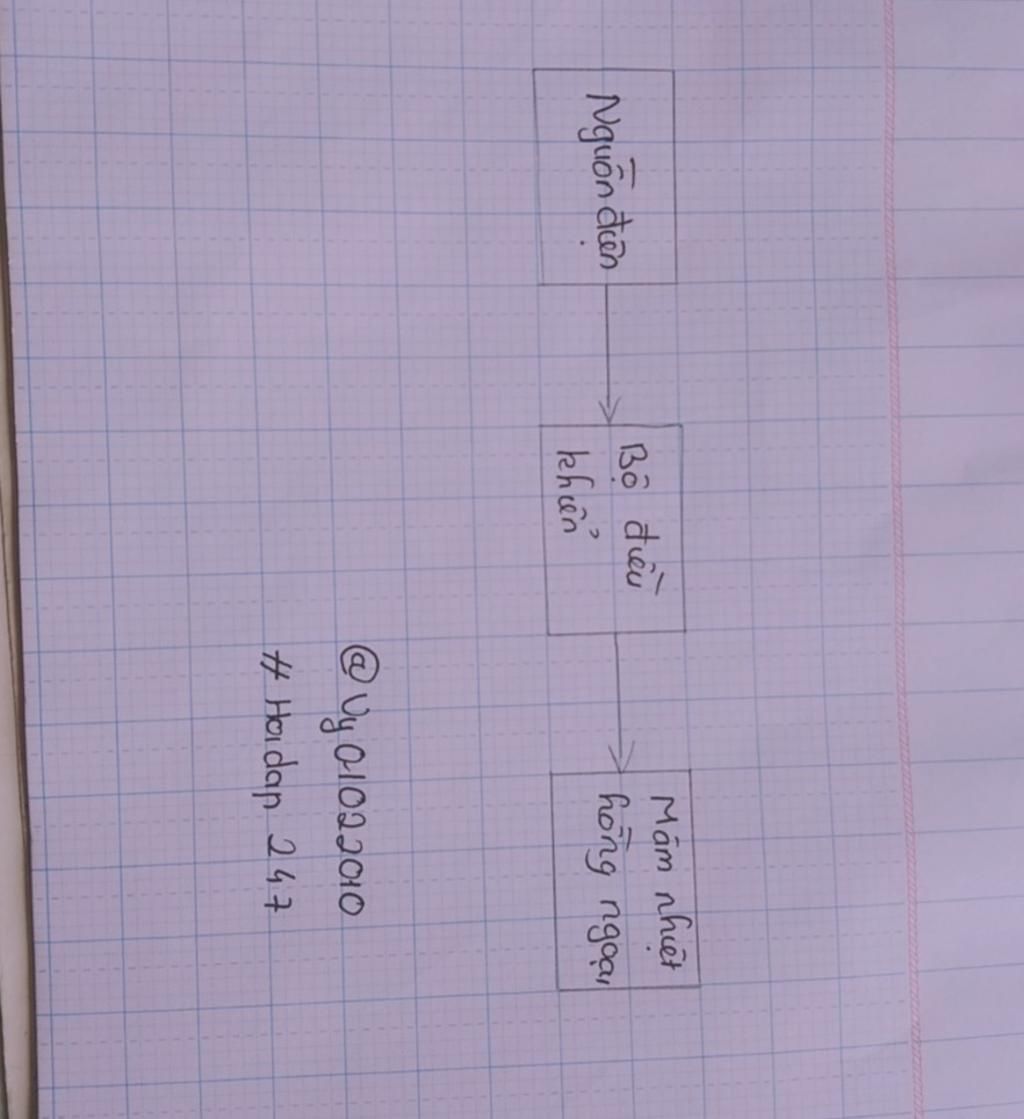 Nguồn điện
Bộ điều
khiển
Mâm nhiệt
hồng ngoại
@Vy01022010
# Hoidap 247